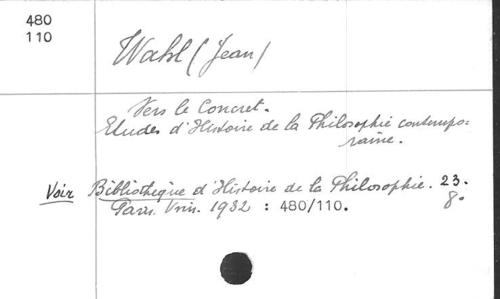 480
110
Wahl (Jean)
Vers le Concret.
Etudes d'Histoire de la Philosophie contempo-
raine.
Voir Bibliothèque d'Histoire de la Philosophie. 23.
Paris. Vrin. 1932 : 480/110. 8°